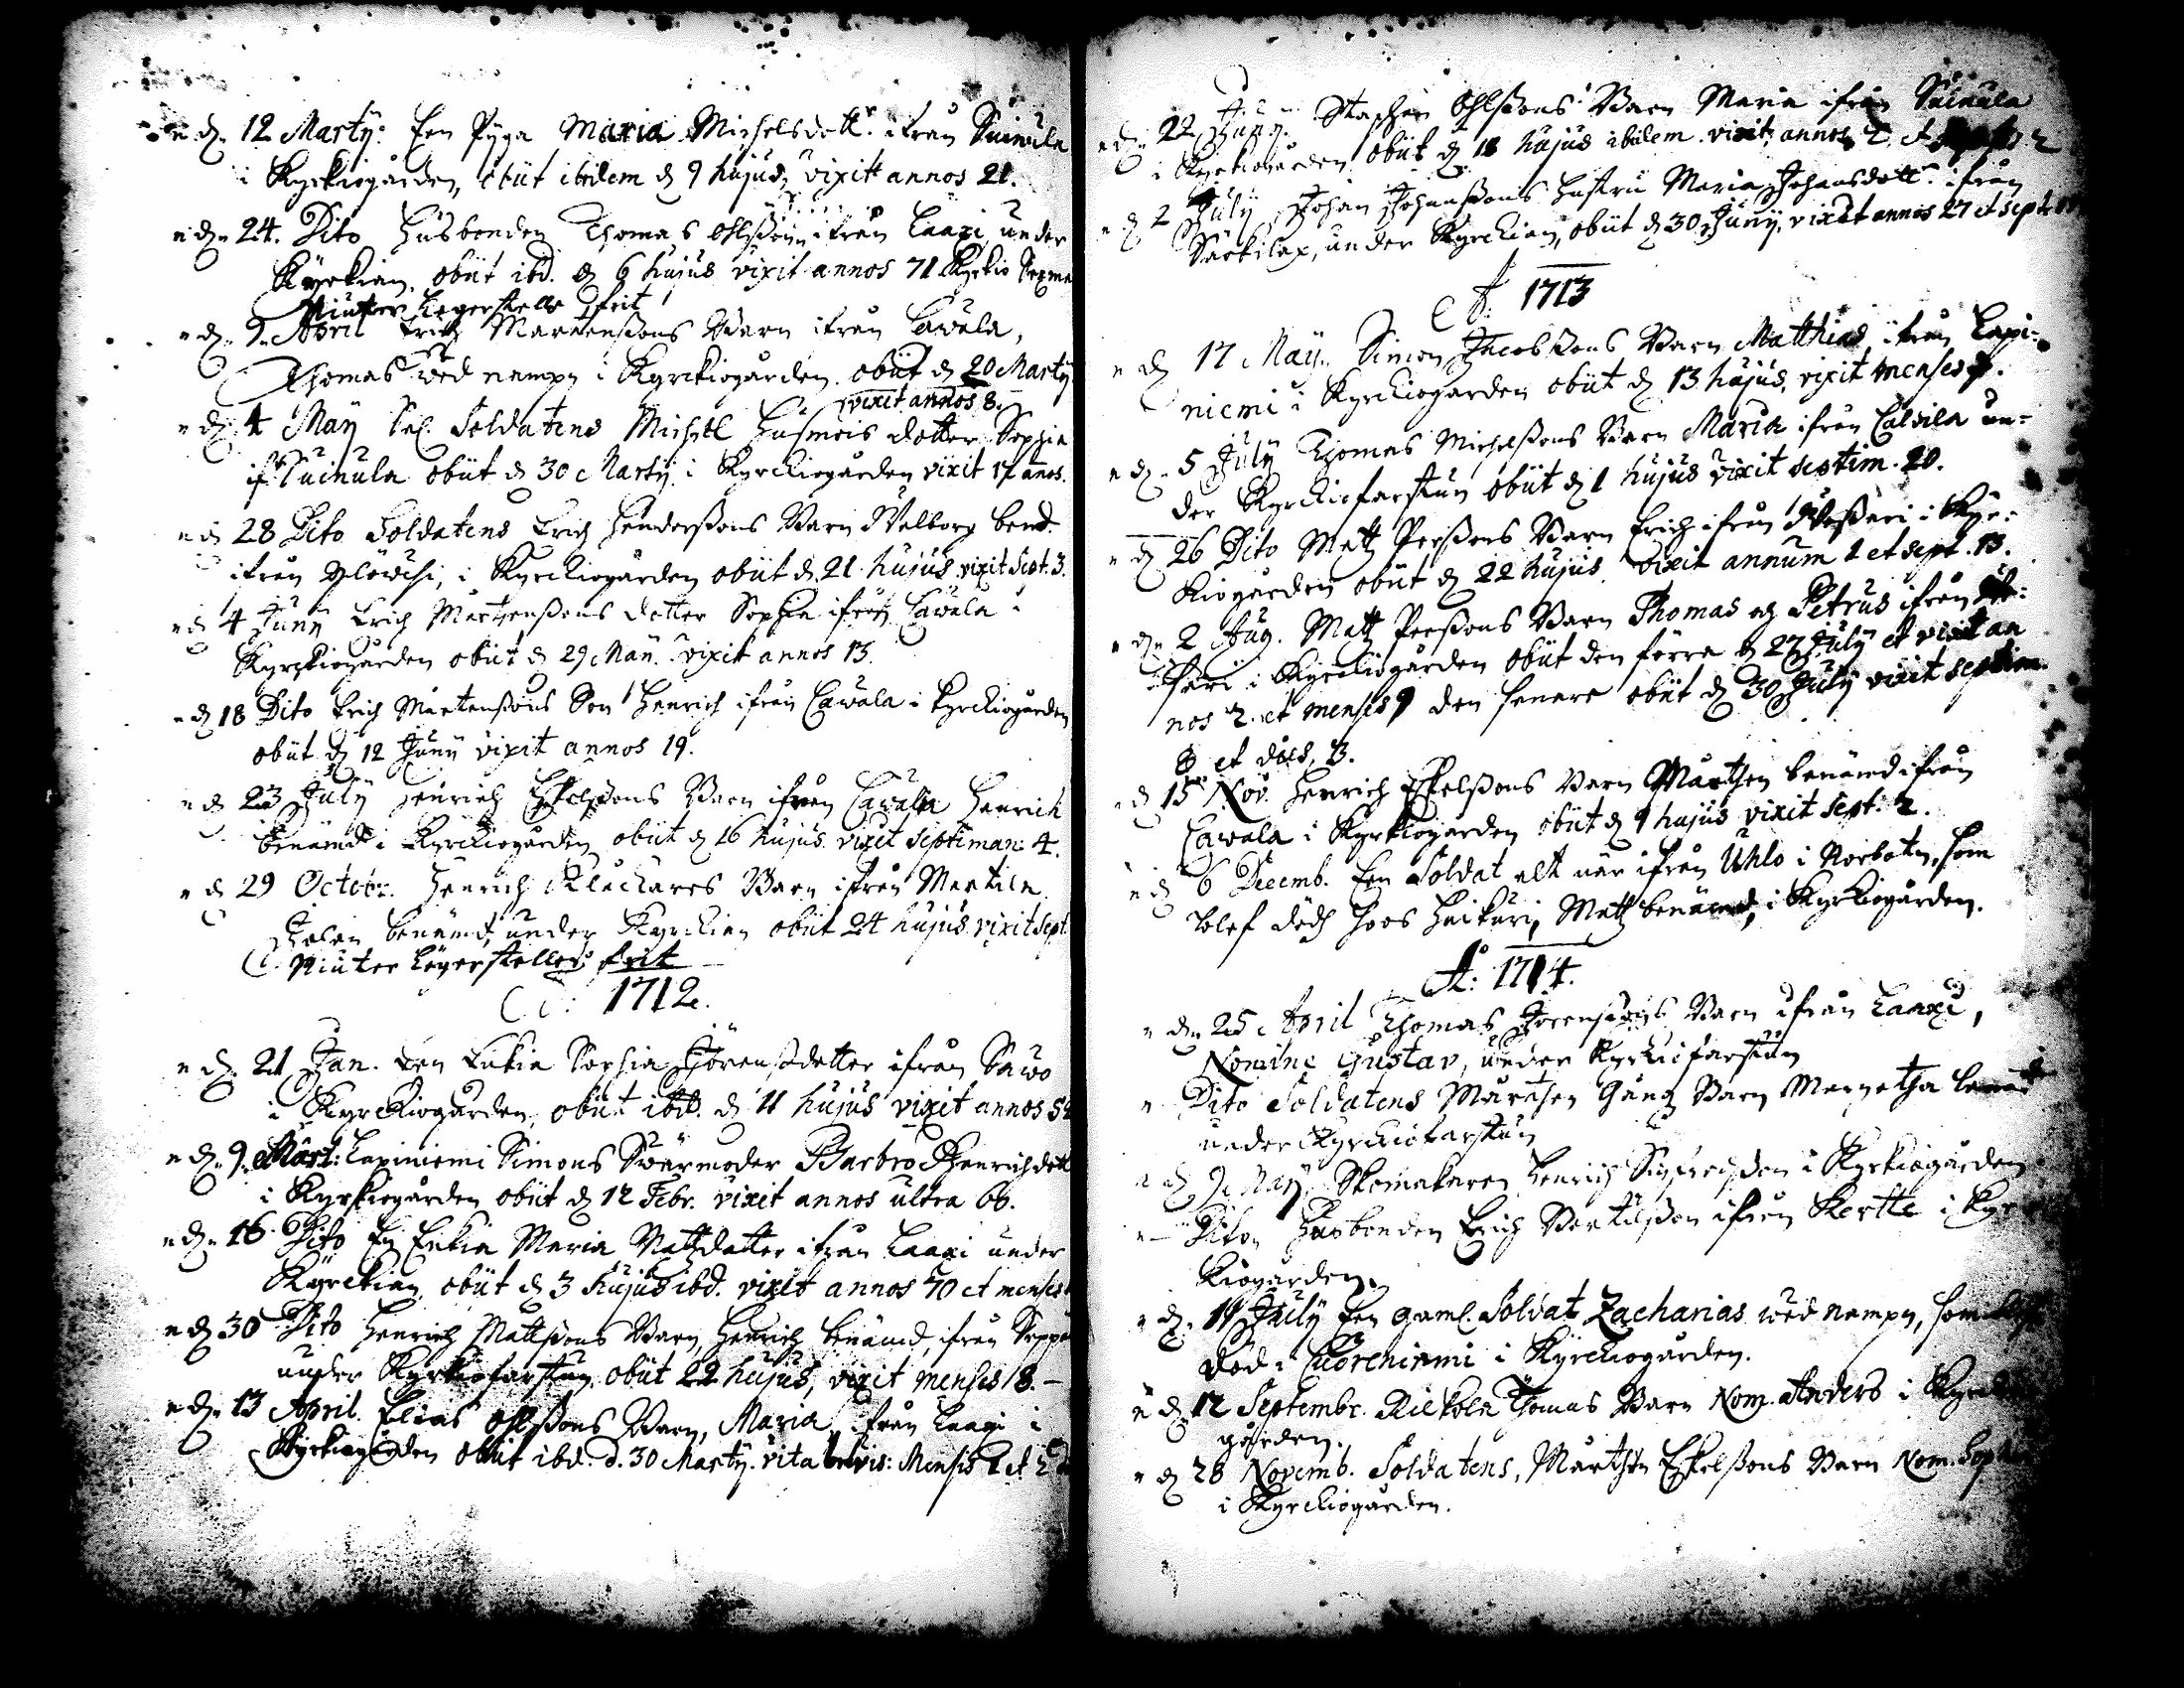 d. 12 Martÿ: Een Pÿga Maria Michelsdott:r ifrån Suinula
i Kyrkiogården, obiit ibidem d. 9 hujus, vixit annos 21.
d. 24. Dito Husbonden Thomas Ohlsson ifrån Laaxi under
Kyrkian, obiit ibd. d. 6 hujus vixit annos 71 Kyrkio Sexman
Niuter Legerstelle frit
d. 9. April Erich Mårtenssons Barn ifrån Cawala,
Thomas wed nampn i Kyrkiogården. obiit d. 20 Martÿ
vixit annos 8.
d. 4 Maÿ Sal. Soldatens Michell Husmois dotter Sophia
if. Suinula obiit d. 30 Martÿ i Kyrckiogården vixit 17 annos.
d. 28 Dito Soldatens Erich Hendersons Barn Walborg bend.
ifrån Ylöwesi, i Kyrckiogården obiit d. 21 hujus vixit Sept. 3.
d. 4 Junÿ Erich Mårtenssons dotter Sophia ifrån Cawala i
Kyrkiogården obiit d. 29 Maÿ. vixit annos 13.
d. 18 Dito Erich Mårtenssons Son Henrich ifrån Cawala i Kyrckiogården
obiit d. 12 Junÿ vixit annos 19.
d. 23 Julÿ Henrich Eskelssons Barn ifrån Cawala Henrich
benämd i Kyrckiogården obiit d. 16 hujus vixit septiman: 4.
d. 29 Octobr. Henrich Klackares Barn ifrån Martila
benämd, under Kyrckian obiit 24 hujus. vixit sept.
Niuter Legerstelle frit
1712.
d. 21 Jan. Een Enkia Sophia Jörensdotter ifrån Sawo
i Kyrckiogården, obiit ibd. d. 11 hujus vixit annos 54
d. 9. Mart: Lapiniemi Simons Swärmoder Barbro Henrichdott
i Kyrkiogården obiit d. 12 Febr. vixit annos ultra 66.
d. 16 Dito En Enkia Maria Mattzdotter ifrån Laaxi under
Kyrckian, obiit d. 3 hujus ibd. vixit annos 70 et menses
d. 30 Dito Henrich Mattssons Barn, Henrich benämd, ifrån Seppä
under Kyrkiofarstun, obiit 22 hujus, vixit menses 18.
d. 13 April. Elias Ohlssons Barn, Maria, ifrån Laaxi i
Kyrkiogården obiit ibd. d. 30 Martÿ. vita brevis: Mensis 1 et 2
d. 22 Junÿ. Staphan Ohlssons Barn Maria ifrån Suinula
i Kyrckiogården obiit d. 18 hujus ibidem. vixit annos 2 et 2
d. 2 Julÿ Johan Johanssons hustru Maria Johansdott:r ifrån
Särkilax, under Kyrckian, obiit d. 30 Junÿ, vixit annos 27 et sept.
A: 1713
d. 17 Maÿ. Simon Jacobssons Barn Matthias, ifrån Lapi-
niemi i Kyrckiogården obiit d. 13 hujus, vixit menses
d. 5 Julÿ Thomas Michelssons Barn Maria ifrån Calvila un-
der Kyrckiofarstun obiit d. 1 hujus vixit septim. 20.
d. 26 Dito Mattz Perssons Barn Erich ifrån i Kyr-
kiogården obiit d. 22 hujus. vixit annum 1 et sept. 13.
d. 2 Aug. Mattz Perssons Barn Thomas och Petrus ifrån
i Kyrckiogården obiit den förra d. 27 Julÿ et vixit an
nos 2. et menses 9 den senare obiit d. 30 Julÿ vixit septim.
8 et dies, 3.
d. 15 Nov. Henrich Eskelssons Barn Mårthen benämd ifrån
Cawala i Kyrkiogården obiit d. 9 hujus vixit sept. 2.
d. 6 Decemb. Een Soldat ifrån Uhlo i Norbotn, som
blef dödh hoos Heikuri, Mattz benämd, i Kyrkiogården.
A: 1714.
d. 25 April Thomas Jörenssons Barn ifrån Laaxi,
Nomine Gustav, under Kyrckiofarstun
Dito Soldatens Mårthen Gång Barn Margetha benämd
under Kyrckiofarstun
d. 9 Maÿ Skomakaren Henrich Sigfredsson i Kyrkiogården
Dito, Husbonden Erich Bertilsson ifrån Kertte i Kyr
kiogården.
d. 11 Julÿ Een gaml. Soldat Zacharias wed nampn, som blef
död i Cuoreniemi i Kyrckiogården.
d. 12 Septembr. Riekola Thomas Barn Nom. Anders i Kyrckio
gården.
d. 28 Novemb. Soldatens, Mårthen Eskelssons Barn Nom. Sophia
i Kyrckiogården.